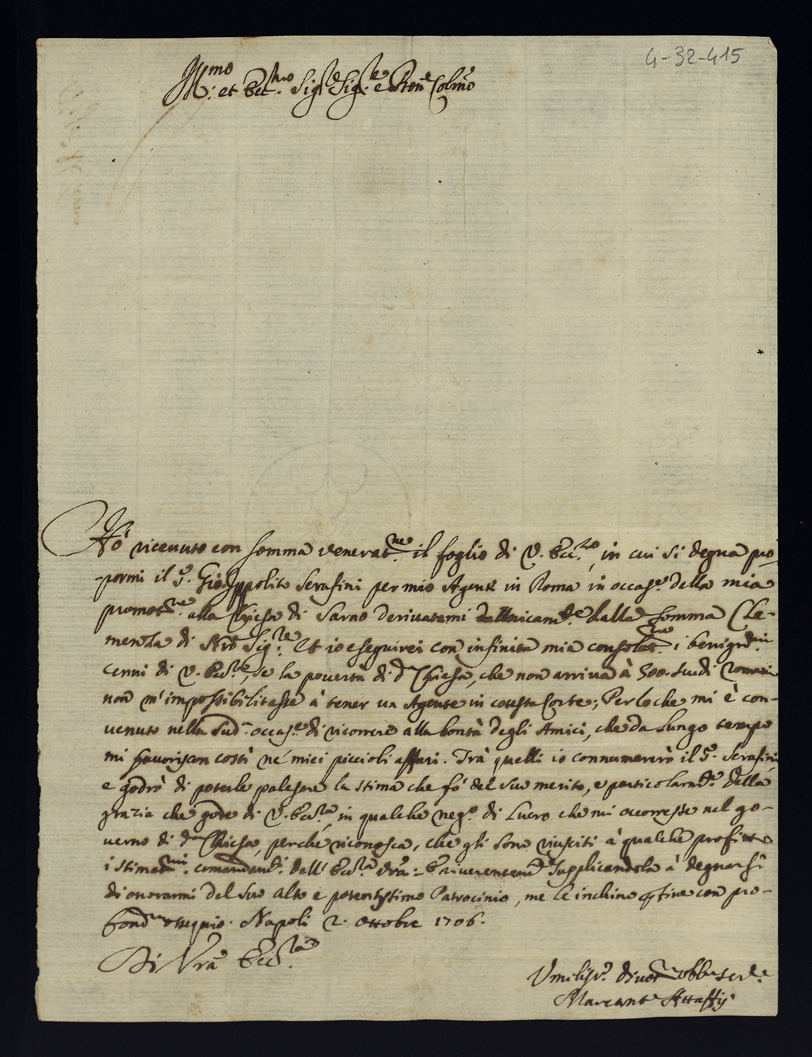 4-32-415
Ill.mo et Ecc.mo Sig.r Sig.re e Pron Colmo
Hò riceuuto con somma venerat.ne il foglio di V. Ecc.za, in cui si degna pro-
-pormi il S.r Gio: Ippolito Serafini per mio Agente in Roma in occas.e della mia
promot.ne alla Chiesa di Sarno deriuatami dalla somma Cle-
menza di Nro Sig.re. Et io eseguirei con infinita mia consolat.ne i benig.mi
cenni di V. Ecc.za, se la pouertà di d.a Chiesa, che non arriua à 500. scudi romani
non m'impossibilitasse à tener un Agente in cotesta Corte; Perloche mi è con-
uenuto nella sud.a occas.e di ricorrere alla bontà degli Amici, che da lungo tempo
mi fauoriscon costì ne' miei piccioli affari. Trà quelli io connumererò il S.r Serafini
e godrò di poterle palesare la stima che fò del suo merito, e particolarm.te della
grazia che gode di V. Ecc.za in qualche neg.o di Lucro che mi occorresse nel go-
uerno di d.a Chiesa, perche riconosca, che gli sono riusciti à qualche profitto
i stimat.mi comandam.ti dell'Ecc.za Vra: E riuerentem.te supplicandola à degnarsi
di onorarmi del suo alto e potentissimo Patrocinio, me le inchino per fine con pro-
fond.mo ossequio. Napoli 2. Ottobre 1706.
Di Vra Ecc.za
Umiliss.o diuot.mo obb.mo ser.re
Marcant.o Attaffij